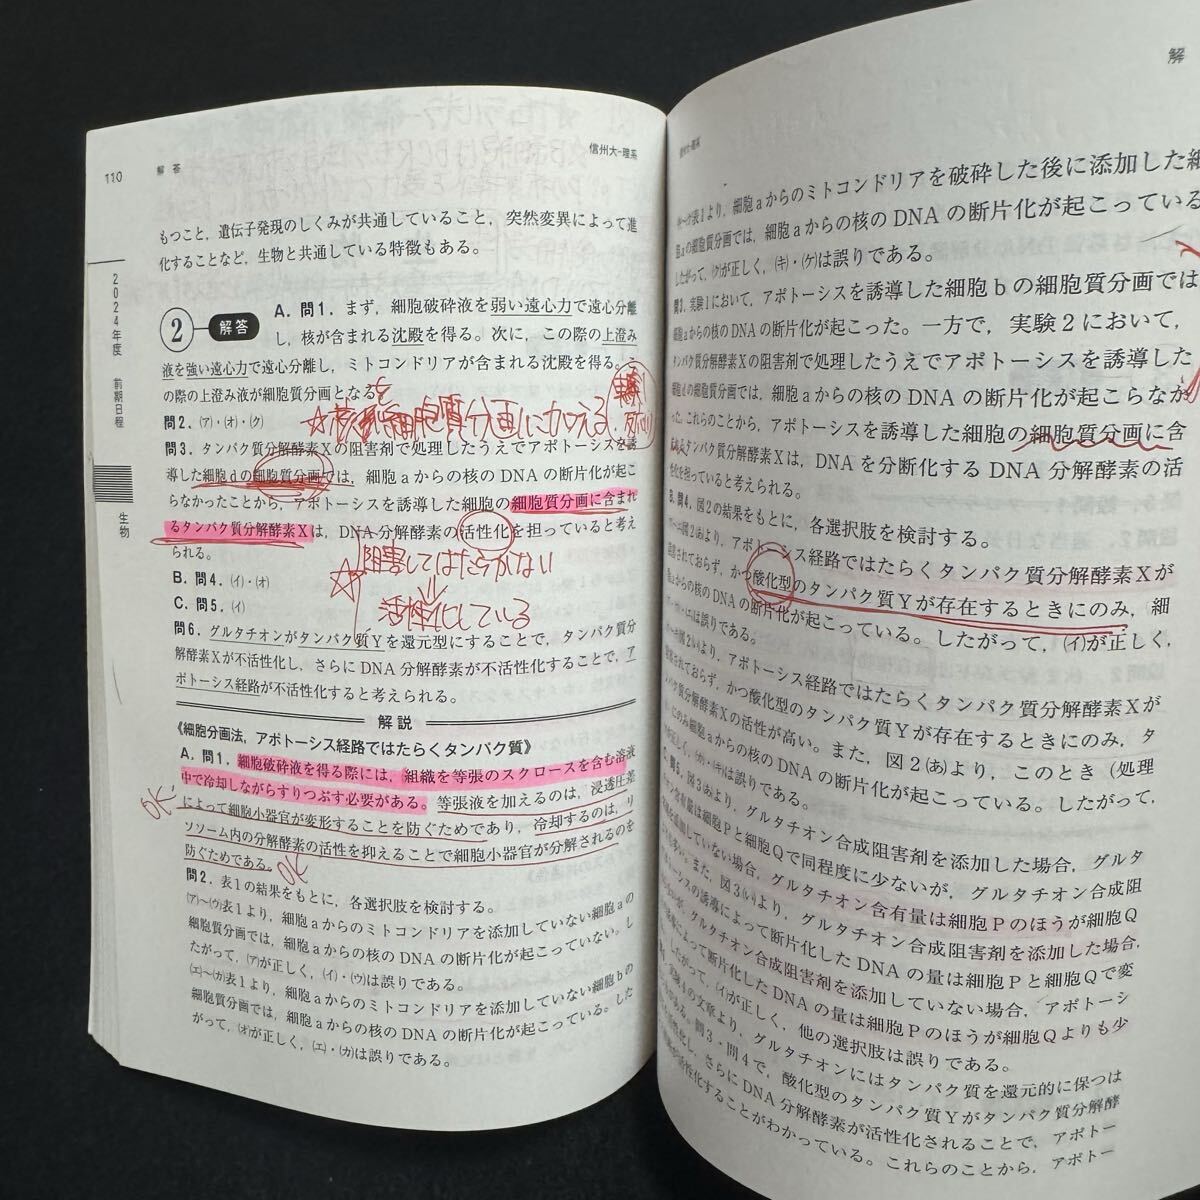 110
解答
信州大-理系
もつこと，遺伝子発現のしくみが共通していること，突然変異によって進
化することなど，生物と共通している特徴もある。
2024年度
前期日程
生物
2 解答
A．問1．まず，細胞破砕液を弱い遠心力で遠心分離
し，核が含まれる沈殿を得る。次に，この際の上澄み
液を強い遠心力で遠心分離し，ミトコンドリアが含まれる沈殿を得る。こ
の際の上澄み液が細胞質分画となる。
問2．(ア)・(オ)・(ク)
☆核を細胞質分画に加える
問3．タンパク質分解酵素Xの阻害剤で処理したうえでアポトーシスを誘
導した細胞dの細胞質分画では，細胞aからの核のDNAの断片化が起こ
らなかったことから，アポトーシスを誘導した細胞の細胞質分画に含まれ
るタンパク質分解酵素Xは，DNA分解酵素の活性化を担っていると考え
られる。
☆阻害してはたらかない
↓
活性化している
B．問4．(イ)・(オ)
C．問5．(イ)
問6．グルタチオンがタンパク質Yを還元型にすることで，タンパク質分
解酵素Xが不活性化し，さらにDNA分解酵素が不活性化することで，ア
ポトーシス経路が不活性化すると考えられる。
解説
《細胞分画法，アポトーシス経路ではたらくタンパク質》
A．問1．細胞破砕液を得る際には，組織を等張のスクロースを含む溶液
中で冷却しながらすりつぶす必要がある。等張液を加えるのは，浸透圧差
OK
によって細胞小器官が変形することを防ぐためであり，冷却するのは，リ
ソソーム内の分解酵素の活性を抑えることで細胞小器官が分解されるのを
防ぐためである。
OK
問2．表1の結果をもとに，各選択肢を検討する。
(ア)～(ウ)表1より，細胞aからのミトコンドリアを添加していない細胞aの
細胞質分画では，細胞aからの核のDNAの断片化が起こっていない。し
たがって，(ア)が正しく，(イ)・(ウ)は誤りである。
(エ)～(カ)表1より，細胞aからのミトコンドリアを添加していない細胞bの
細胞質分画では，細胞aからの核のDNAの断片化が起こっている。した
がって，(オ)が正しく，(エ)・(カ)は誤りである。
信州大-理系
解
(キ)～(ケ)表1より，細胞aからのミトコンドリアを破砕した後に添加した細
胞aの細胞質分画では，細胞aからの核のDNAの断片化が起こっている
したがって，(ク)が正しく，(キ)・(ケ)は誤りである。
問3．実験1において，アポトーシスを誘導した細胞bの細胞質分画では
細胞aからの核のDNAの断片化が起こった。一方で，実験2において，
タンパク質分解酵素Xの阻害剤で処理したうえでアポトーシスを誘導した
細胞dの細胞質分画では，細胞aからの核のDNAの断片化が起こらなか
った。これらのことから，アポトーシスを誘導した細胞の細胞質分画に含
まれるタンパク質分解酵素Xは，DNAを分断化するDNA分解酵素の活
性化を担っていると考えられる。
B．問4．図2の結果をもとに，各選択肢を検討する。
図2(あ)より，アポトーシス経路ではたらくタンパク質分解酵素Xが
阻害されておらず，かつ酸化型のタンパク質Yが存在するときにのみ，細
胞aからの核のDNAの断片化が起こっている。したがって，(イ)が正しく，
は誤りである。
図2(い)より，アポトーシス経路ではたらくタンパク質分解酵素Xが
阻害されておらず，かつ酸化型のタンパク質Yが存在するときにのみ，タ
ンパク質分解酵素Xの活性が高い。また，図2(あ)より，このとき（処理
にのみ細胞aからの核のDNAの断片化が起こっている。したがって，
が正しく，(カ)は誤りである。
問5．図3(あ)より，グルタチオン合成阻害剤を添加した場合，グルタ
チオン含有量は細胞Pと細胞Qで同程度に少ないが，グルタチオン合成阻
害剤を添加していない場合，グルタチオン含有量は細胞Pのほうが細胞Q
も多い。また，図3(い)より，グルタチオン合成阻害剤を添加した場合，
アポトーシスの誘導によって断片化したDNAの量は細胞Pと細胞Qで変
が，グルタチオン合成阻害剤を添加していない場合，アポトーシ
スの誘導によって断片化したDNAの量は細胞Pのほうが細胞Qよりも少
したがって，(イ)が正しく，他の選択肢は誤りである。
実験4の文章より，グルタチオンにはタンパク質を還元的に保つは
がある。問3・問4で，酸化型のタンパク質Yがタンパク質分解酵
性化し，さらにDNA分解酵素が活性化されることで，アポトー
が活性化することがわかっている。これらのことから，アポトー